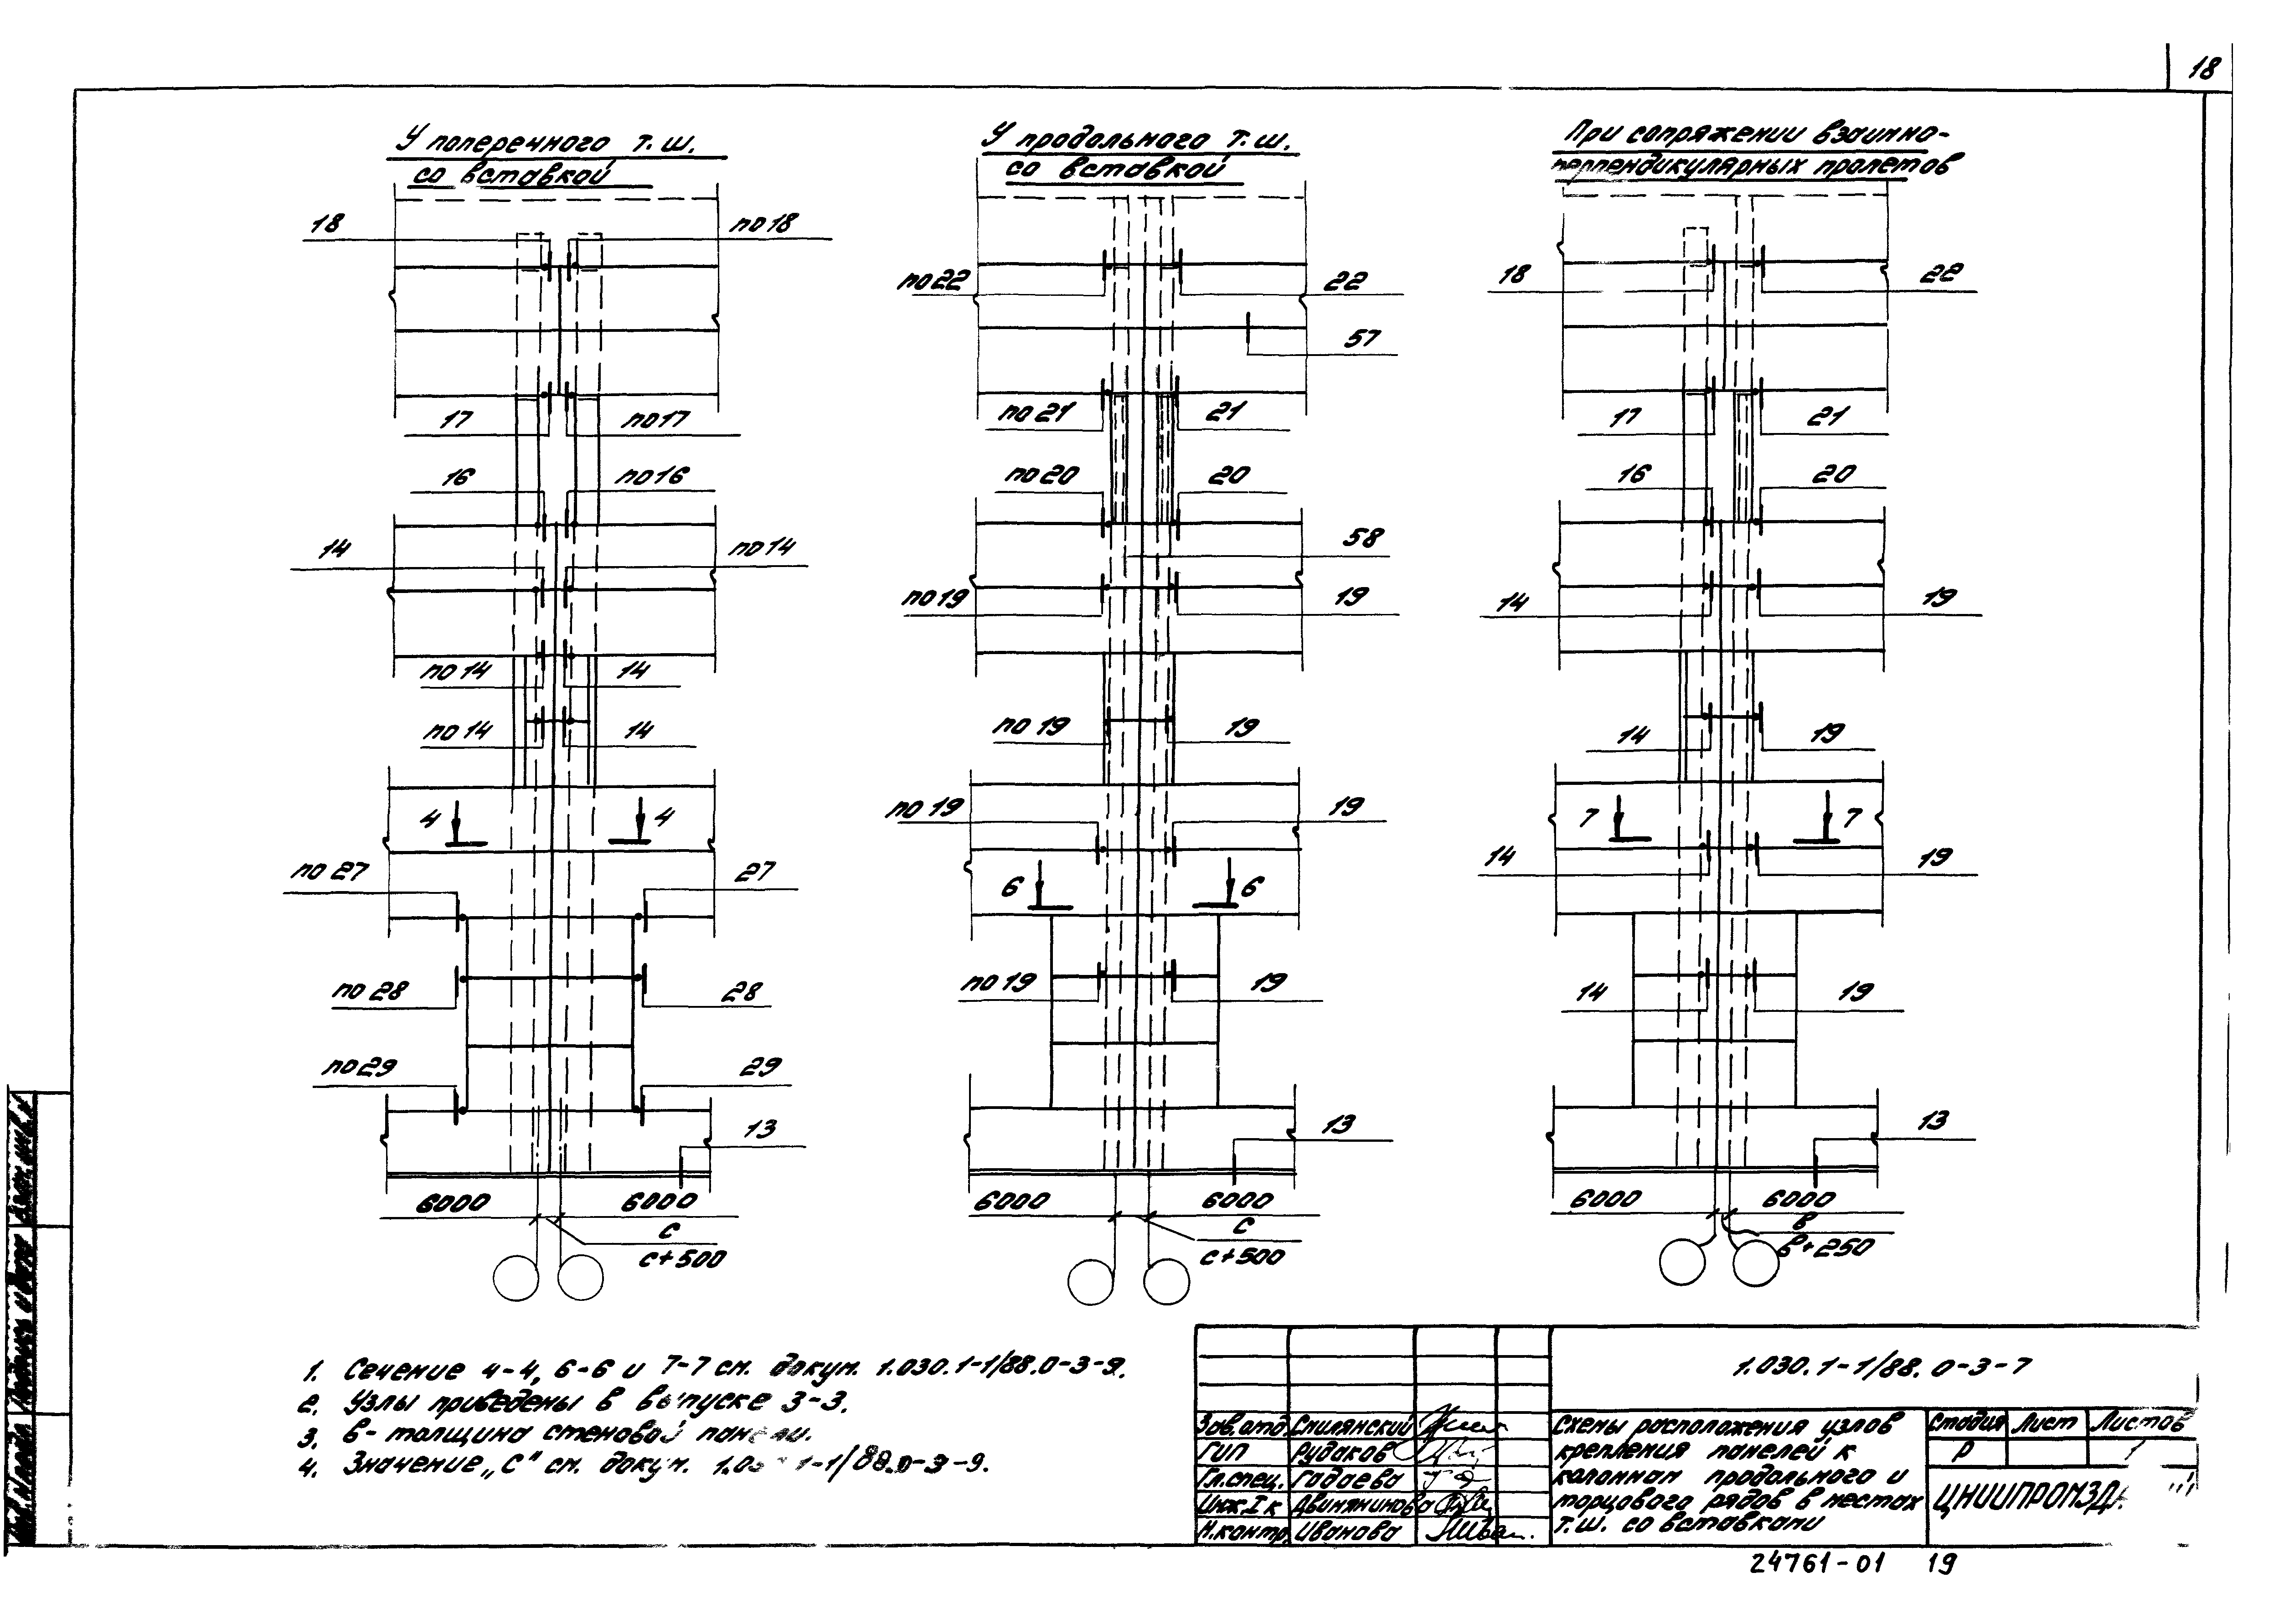 18
У поперечного т.ш.
со вставкой
18
по 18
17
по 17
16
по 16
14
по 14
по 14
14
по 14
14
4
4
по 27
27
по 28
28
по 29
29
13
6000
6000
с
с+500
У продольного т.ш.
со вставкой
по 22
22
57
по 21
21
по 20
20
58
по 19
19
по 19
19
по 19
19
6
6
по 19
19
13
6000
6000
с
с+500
При сопряжении взаимно-
перпендикулярных пролетов
18
22
17
21
16
20
14
19
14
19
7
7
14
19
14
19
13
6000
6000
в
в+250
1. Сечение 4-4, 6-6 и 7-7 см. докум. 1.030.1-1/88.0-3-9.
2. Узлы приведены в выпуске 3-3.
3. в - толщина стеновой панели.
4. Значение „С" см. докум. 1.03 1-1/88.0-3-9.
1.030.1-1/88.0-3-7
Зав.отд. Смилянский
ГИП Рудаков
Гл.спец. Годаева
Инж.I к Двинянинова
Н.контр. Иванова
Схемы расположения узлов
крепления панелей к
колоннам продольного и
торцового рядов в местах
т.ш. со вставками
Стадия Лист Листов
Р 1
ЦНИИПРОМЗДА
24761-01 19
Инв.№подл. Подпись и дата Взам.инв.№